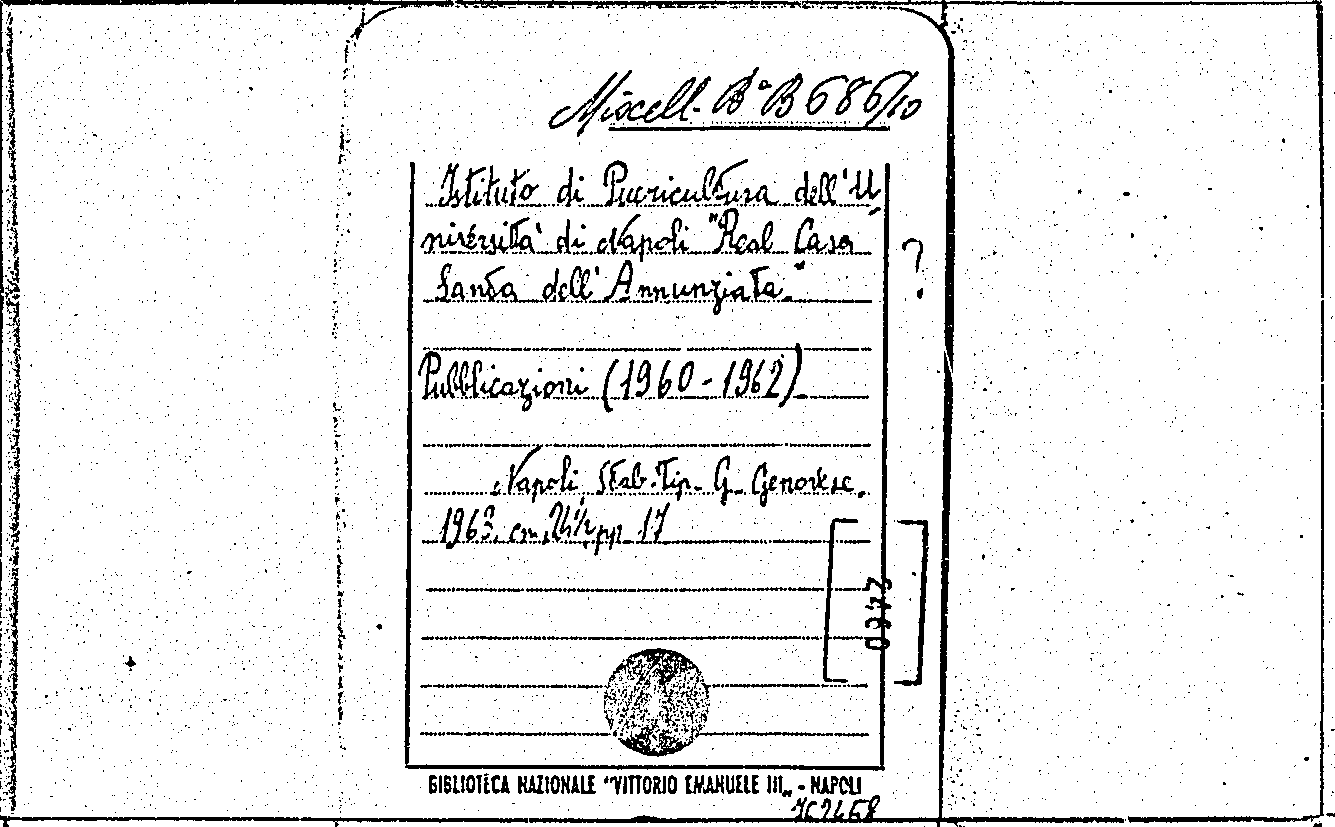 Miscell. Bª B 686/10
Istituto di Puericultura dell'U
niversità di Napoli "Real Casa
Santa dell'Annunziata."
?
Pubblicazioni (1960-1962).
Napoli, Stab. Tip. G. Genovese.
1963. cm. 24½ pp. 17
BIBLIOTECA NAZIONALE "VITTORIO EMANUELE III„ - NAPOLI